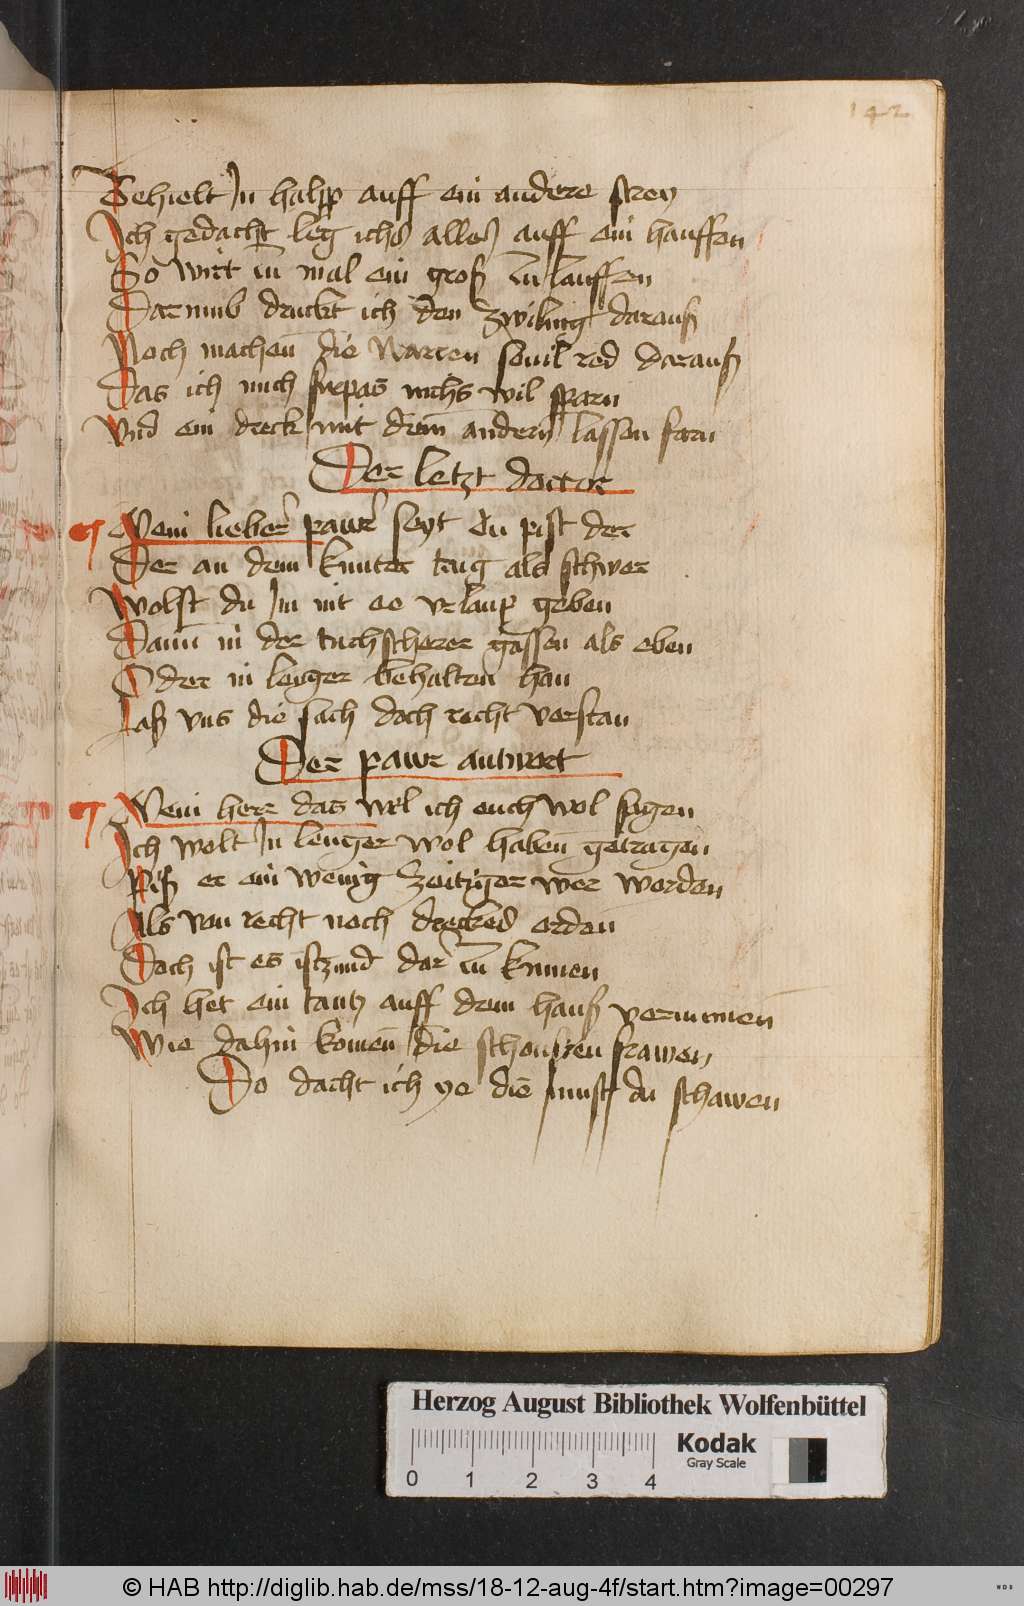 142
Behielt Jn halp auff ein andere streu
Jch gedacht leg ichs alles auff ein hauffen
So wirt im mal ein groß zulauffen
Darumb druckt ich den zwiling darauß
Noch machen die Narren souil red darauß
Das ich mich furpas nichs wil sparn
Vnd ein dreck mit dem andern lassen farn
Der letzt doctor
Mein lieber pawr seyt du pist der
Der an dem kunter trug als schwer
Wolst du Jm nit ee vrlaup geben
Dann in der tuchscherer gassen als eben
Oder in lenger behalten han
Laß vns die sach doch recht verstan
Der pawr antwort
Mein herr das wil ich euch wol sagen
Jch wolt Jn lenger wol haben getragen
Piß er ein wenig zeitiger wer worden
Als von recht noch dreckes orden
Doch ist es itzund dar zu kumen
Jch het ein tantz auff dem hauß vernumen
Wie dahin komen die schonsten frawen
Do dacht ich ye die must du schawen
Herzog August Bibliothek Wolfenbüttel
0 1 2 3 4
Kodak
Gray Scale
© HAB http://diglib.hab.de/mss/18-12-aug-4f/start.htm?image=00297